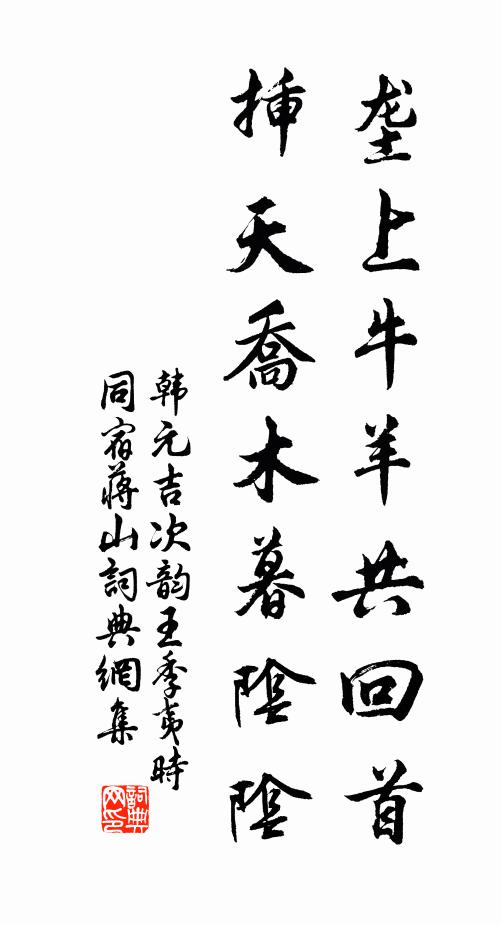 垄上牛羊共回首
挿天喬木暮陰陰
韩元吉次韵王季夷時
同宿蔣山詞典網集
詞典网印